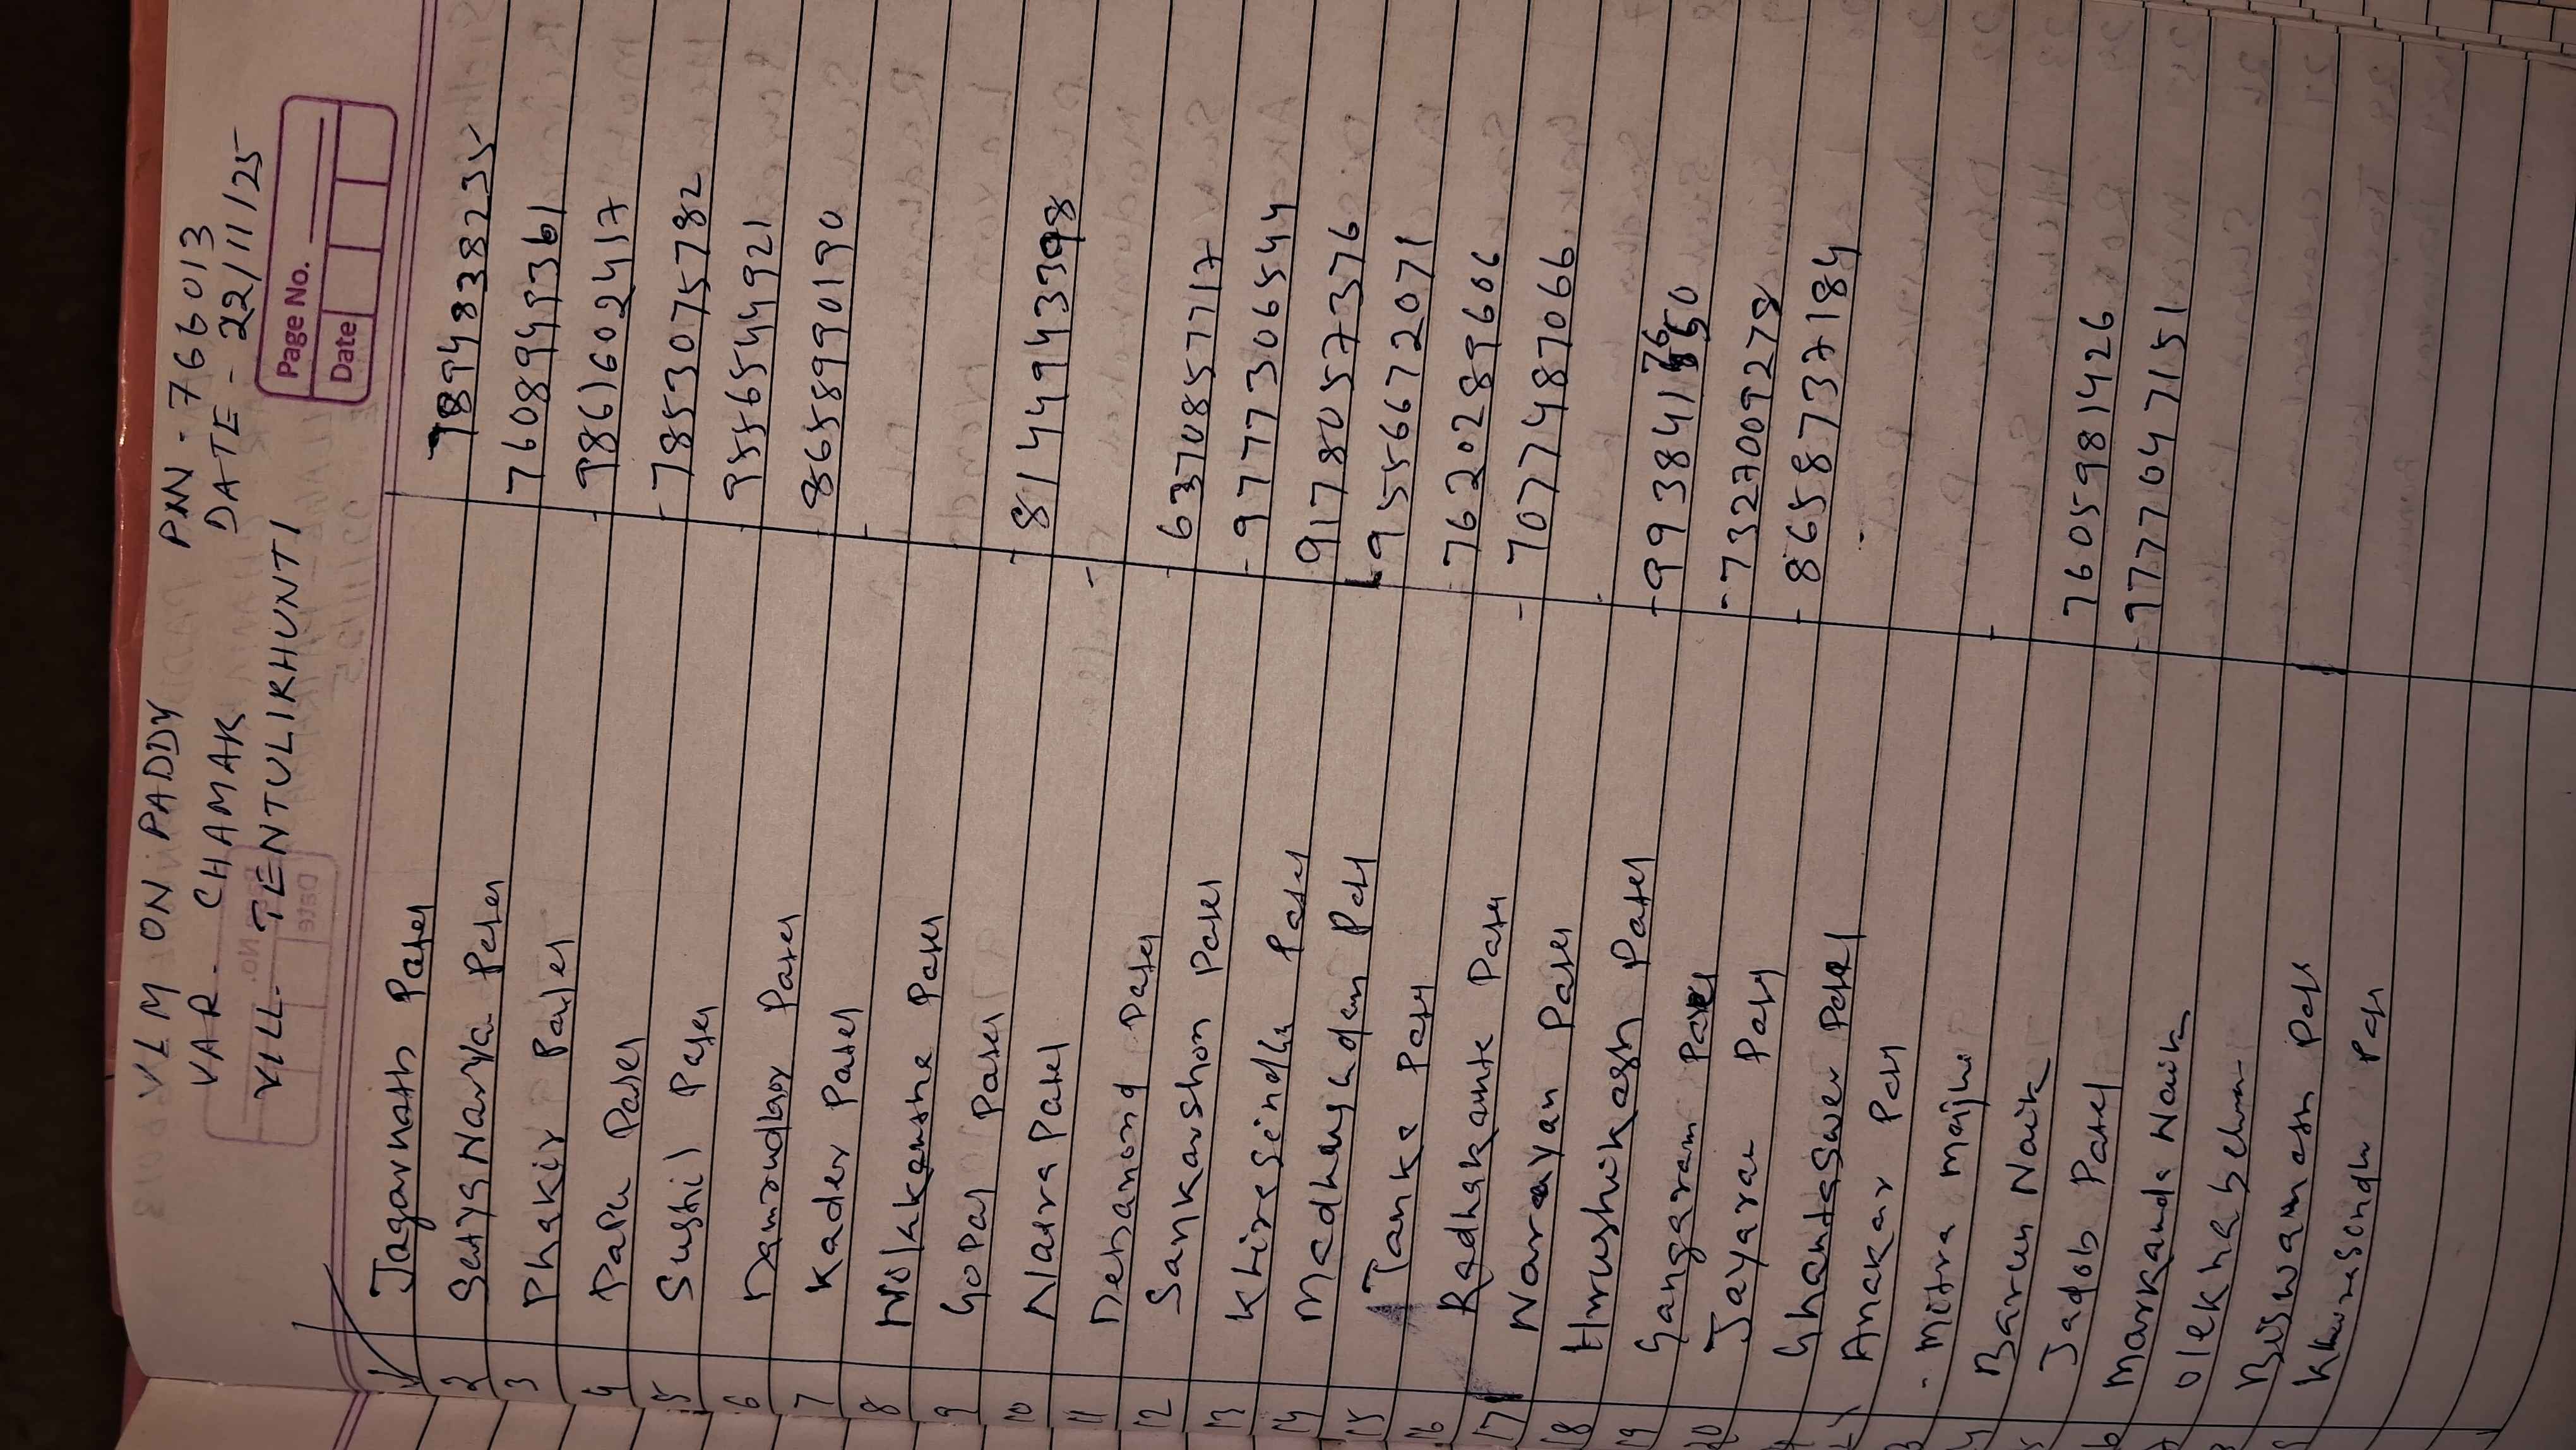 VLM ON PADDY PNN - 766013
VAR - CHAMAK DATE - 22/11/25
VILL - TENTULIKHUNTI
Page No.
Date
Jagarnath Patel 7894838235
2 Satya Narya Patel 7608948361
3 Phakir Patel 9861602417
4 Papu Patel 7853075782
5 Sushil Patel 9556544921
6 Damrudhar Patel 8658990190
7 Kader Patel
8 Nilakanthe Patel
9 Gopal Patel 8144943398
10 Natra Patel
11 Debanand Patel 6370857717
12 Sankarshon Patel 9777306544
13 Khirasindhu Patel 9178057376
14 Madhusudan Patel 9556672071
15 Tanka Patel 7620289606
16 Radhakante Patel 7077487066
17 Narayan Patel
18 Hrushikesh Patel
19 Gangaram Patel 7327009278
20 Jayaram Patel 8658737184
Ghantaswer Patel
Anakar Patel
Mitra Majhi
Barun Naik 7605981426
Jadob Patel 9777047151
Markanda Naik
Olekha behera
Biswanath Patel
Patel